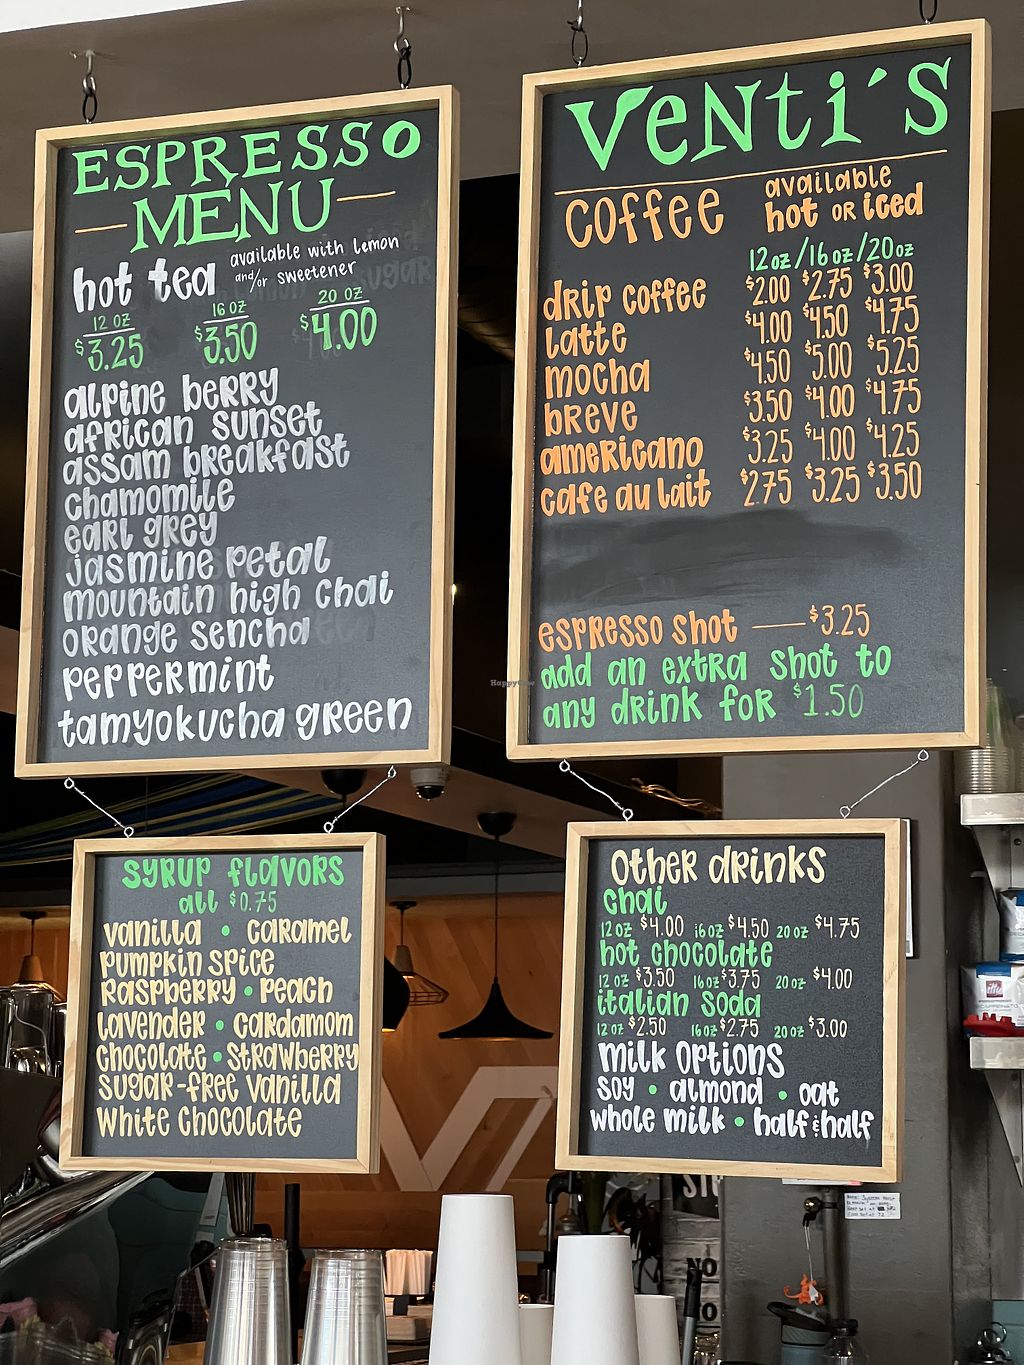 ESPRESSO
MENU
hot tea available with lemon
and/or sweetener
12 OZ 16 OZ 20 OZ
$3.25 $3.50 $4.00
alpine berry
african sunset
assam breakfast
chamomile
earl grey
jasmine petal
mountain high chai
orange sencha
peppermint
tamyokucha green
Venti's
coffee available
hot or iced
12 oz/16 oz/20 oz
drip coffee $2.00 $2.75 $3.00
latte $4.00 $4.50 $4.75
mocha $4.50 $5.00 $5.25
breve $3.50 $4.00 $4.75
americano $3.25 $4.00 $4.25
cafe au lait $2.75 $3.25 $3.50
espresso shot — $3.25
add an extra shot to
any drink for $1.50
syrup flavors
all $0.75
vanilla • caramel
pumpkin spice
raspberry • peach
lavender • cardamom
chocolate • strawberry
sugar-free vanilla
white chocolate
other drinks
chai
12 oz $4.00 16 oz $4.50 20 oz $4.75
hot chocolate
12 oz $3.50 16 oz $3.75 20 oz $4.00
italian soda
12 oz $2.50 16 oz $2.75 20 oz $3.00
milk options
soy • almond • oat
whole milk • half & half
illy
NO
HappyCow